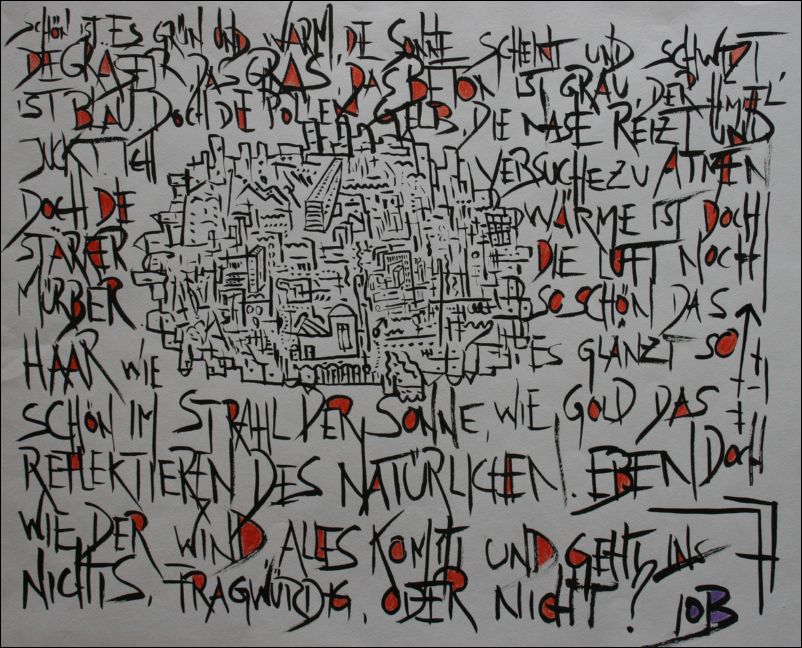 SCHÖN IST ES GRÜN UND WARM, DIE SONNE SCHEINT UND SCHWITZT,
DIE GRÄSER, DAS GRAS, DAS BETON IST GRAU, DER HIMMEL
IST BLAU. DOCH DIE POLLEN GELB, DIE NASE REIZT UND
JUCKT ICH VERSUCHE ZU ATMEN
DOCH DIE WÄRME IST DOCH
STÄRKER DIE LUFT NOCH
MÜRBER SO SCHÖN DAS
HAAR WIE ES GLÄNZT SO
SCHÖN IM STRAHL DER SONNE, WIE GOLD DAS
REFLEKTIEREN DES NATÜRLICHEN. EBEN DOCH
WIE DER WIND ALLES KOMMT UND GEHT, INS
NICHTS. FRAGWÜRDIG, ODER NICHT?
JOB